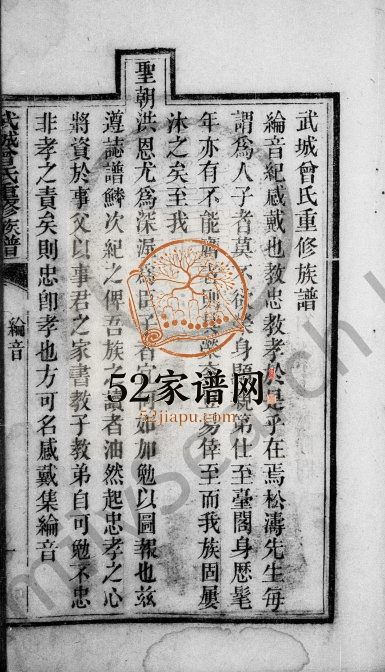 武城曾氏重修族譜
綸音紀感戴也教忠教孝於是乎在焉松濤先生每
謂爲人子者莫不欲榮身顯親第仕至臺閣身歷髦
年亦有不能易倖至而我族固屢
沐之矣至我
聖朝洪恩尤爲深渥爲臣子者宜何如加勉以圖報也玆
遵誌譜鱗次紀之俾吾族之讀者油然起忠孝之心
將資於事父以事君之家書教子教弟自可勉不忠
非孝之責矣則忠卽孝也方可名感戴集綸音
武城曾氏重修族譜
綸音
52家谱网
52jiapu.com